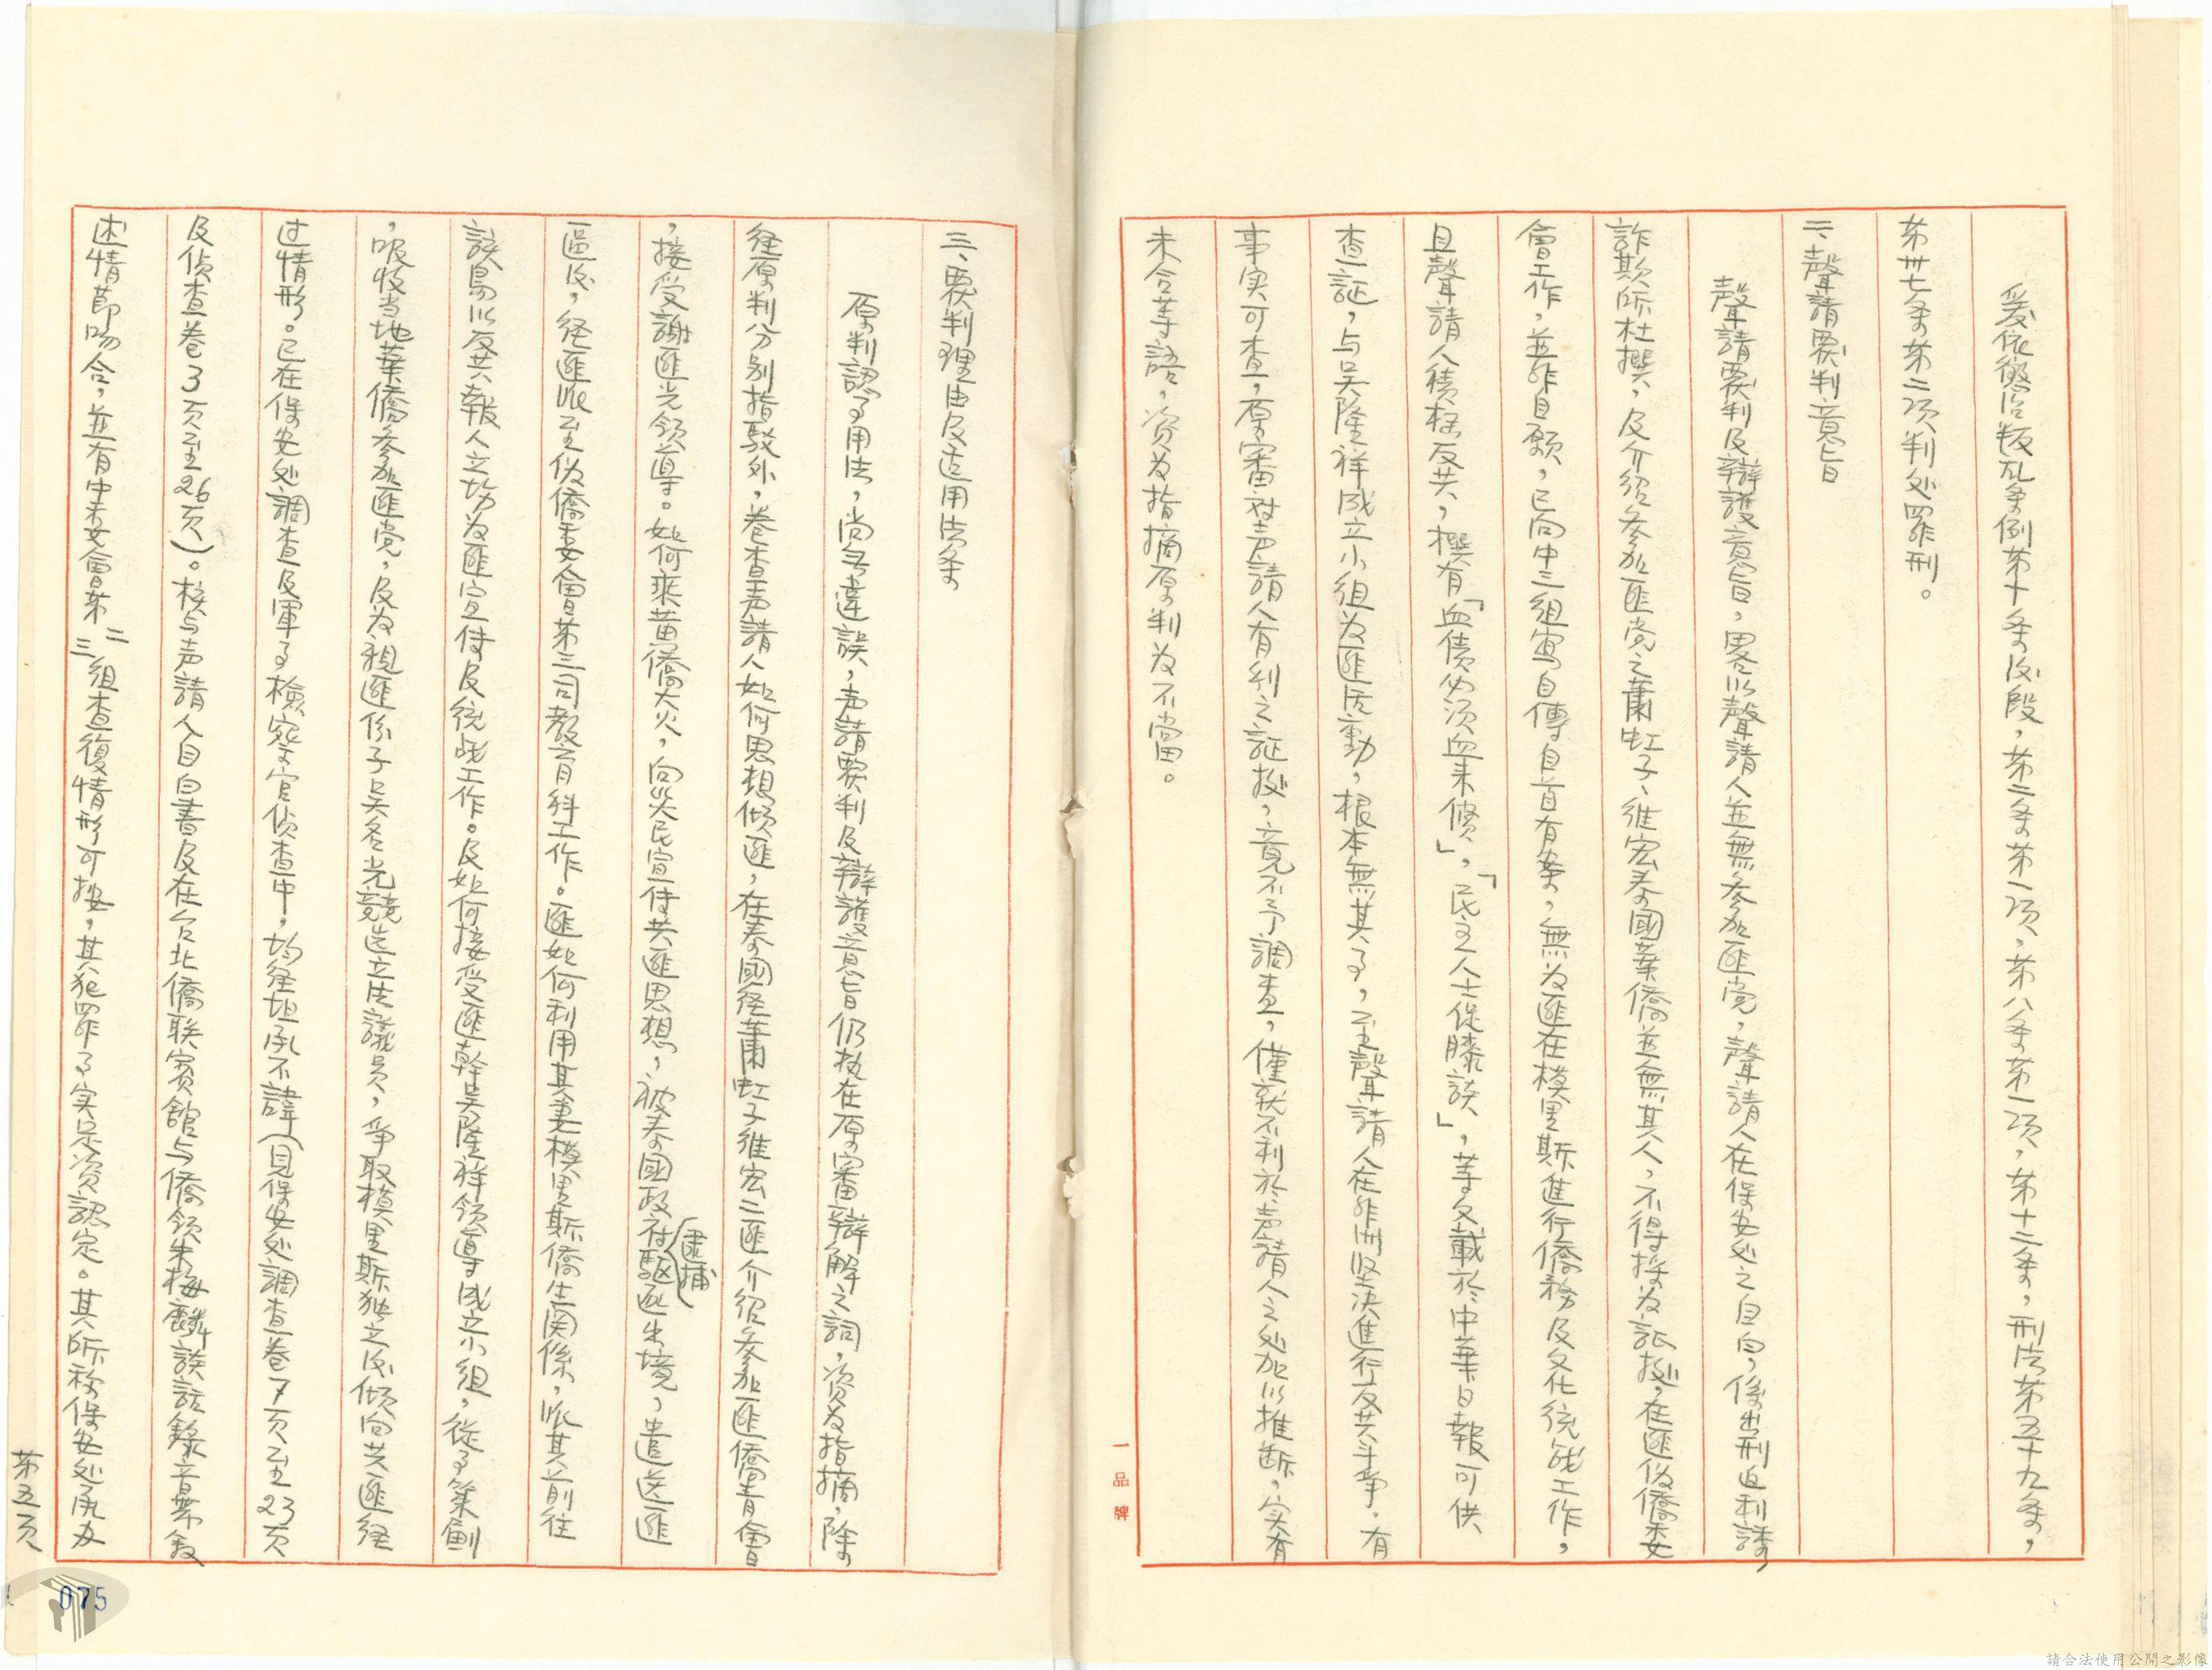 爰依懲治叛乱条例第十条后段，第二条第一项，第八条第一项，第十二条，刑法第五十九条，
第卅七条第二项判处罪刑。
二、聲請覆判意旨
聲請覆判及辯護意旨，畧以聲請人並無參加匪党，聲請人在保安处之自白，係出刑迫利誘
詐欺所杜撰，及介紹參加匪党之蕭虹子、維宏泰國華僑並無其人，不得採為証据，在匪伪僑委
會工作，並非自願，已向中三組寫自傳自首有案，無为匪在模里斯進行僑務及文化統战工作，
且聲請人積极反共，撰有「血債必須血来償」，「民主人士促膝談」，等文載於中華日報可供
查証，与吳隆祥成立小組为匪活動，根本無其事，至聲請人在非洲坚决進行反共斗爭，有
事实可查，原審对声請人有利之証据，竟不予調查，僅就不利於声請人之处加以推断，实有
未合等語，资为指摘原判为不當。
三、覆判理由及适用法条
原判認事用法，尚无違誤，声請覆判及辯護意旨仍执在原審辯解之詞，资为指摘，除
经原判分别指駁外，卷查声請人如何思想倾匪，在泰國经蕭虹子維宏二匪介紹參加匪僑青會
，接受謝匪光领导。如何乘黄僑大火，向災民宣传共匪思想，被泰國政府驅逐出境，遣送匪
逮捕
區后，经匪派至伪僑委會第三司教育科工作。匪如何利用其妻模里斯僑生関係，派其前往
該島以反共報人立場为匪宣传及統战工作。及如何接受匪幹吳隆祥领导成立小組，從事策劃
，吸收当地華僑參加匪党，及为親匪份子吳名光競选立法議員，爭取模里斯独立后倾向共匪经
过情形。已在保安处調查及軍事檢察官偵查中，均经坦承不諱（見保安处調查卷7页至23页
及偵查卷3页至26页）。核与声請人自白書及在台北僑联賓館与僑领朱梅麟談話錄音帶敘
述情節吻合，並有中委會第二三組查復情形可按，其犯罪事实足资認定。其所称保安处承办
第五页
075
一品牌
請合法使用公開之影像